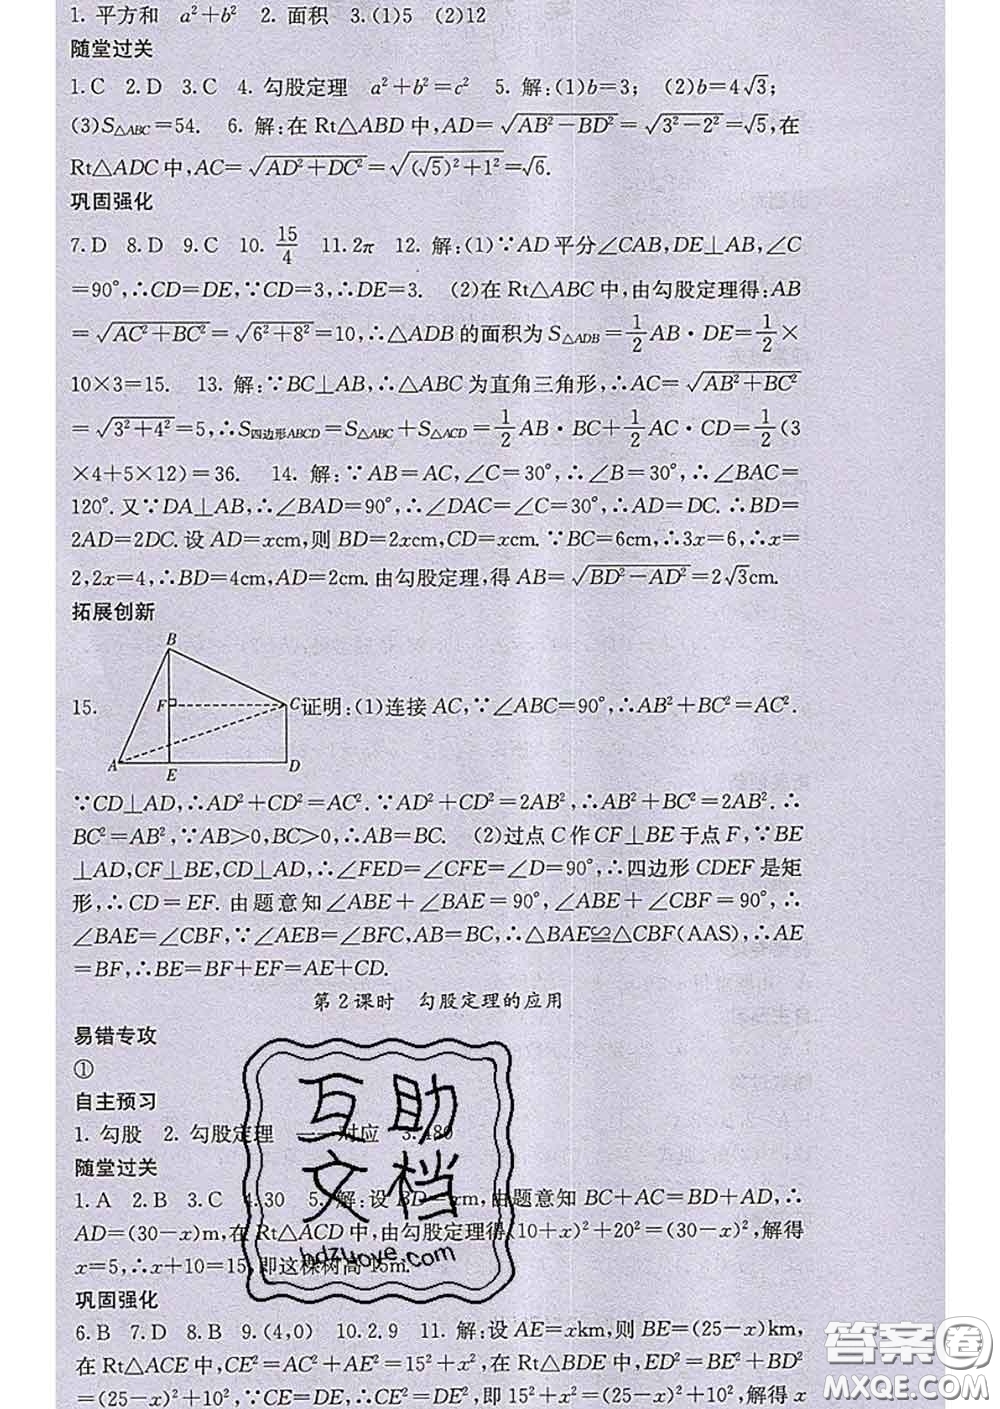 1. 平方和 a²+b² 2. 面积 3.(1)5 (2)12
随堂过关
1.C 2.D 3.C 4. 勾股定理 a²+b²=c² 5. 解:(1)b=3; (2)b=4√3;
(3)S△ABC=54. 6. 解:在 Rt△ABD 中,AD=√(AB²−BD²)=√(3²−2²)=√5,在
Rt△ADC 中,AC=√(AD²+DC²)=√((√5)²+1²)=√6.
巩固强化
7.D 8.D 9.C 10. 15/4 11.2π 12. 解:(1)∵AD 平分∠CAB,DE⊥AB,∠C
=90°,∴CD=DE,∵CD=3,∴DE=3. (2)在 Rt△ABC 中,由勾股定理得:AB
=√(AC²+BC²)=√(6²+8²)=10,∴△ADB 的面积为 S△ADB=1/2 AB·DE=1/2×
10×3=15. 13. 解:∵BC⊥AB,∴△ABC 为直角三角形,∴AC=√(AB²+BC²)
=√(3²+4²)=5,∴S四边形ABCD=S△ABC+S△ACD=1/2 AB·BC+1/2 AC·CD=1/2(3
×4+5×12)=36. 14. 解:∵AB=AC,∠C=30°,∴∠B=30°,∴∠BAC=
120°.又∵DA⊥AB,∴∠BAD=90°,∴∠DAC=∠C=30°,∴AD=DC.∴BD=
2AD=2DC.设 AD=xcm,则 BD=2xcm,CD=xcm.∵BC=6cm,∴3x=6,∴x=
2,2x=4,∴BD=4cm,AD=2cm.由勾股定理,得 AB=√(BD²−AD²)=2√3cm.
拓展创新
B
F
C
A
E
D
15. 证明:(1)连接 AC,∵∠ABC=90°,∴AB²+BC²=AC².
∵CD⊥AD,∴AD²+CD²=AC².∵AD²+CD²=2AB²,∴AB²+BC²=2AB².∴
BC²=AB²,∵AB>0,BC>0,∴AB=BC. (2)过点 C 作 CF⊥BE 于点 F,∵BE
⊥AD,CF⊥BE,CD⊥AD,∴∠FED=∠CFE=∠D=90°,∴四边形 CDEF 是矩
形,∴CD=EF.由题意知∠ABE+∠BAE=90°,∠ABE+∠CBF=90°,∴
∠BAE=∠CBF,∵∠AEB=∠BFC,AB=BC,∴△BAE≌△CBF(AAS),∴AE
=BF,∴BE=BF+EF=AE+CD.
第2课时 勾股定理的应用
易错专攻
①
自主预习
1. 勾股 2. 勾股定理 一一对应 3.480
随堂过关
1.A 2.B 3.C 4.30 5. 解:设 BD=xm,由题意知 BC+AC=BD+AD,∴
AD=(30−x)m,在 Rt△ACD 中,由勾股定理得(10+x)²+20²=(30−x)²,解得
x=5,∴x+10=15,即这棵树高 15m.
巩固强化
6.B 7.D 8.B 9.(4,0) 10.2.9 11. 解:设 AE=xkm,则 BE=(25−x)km,
在 Rt△ACE 中,CE²=AC²+AE²=15²+x²,在 Rt△BDE 中,ED²=BE²+BD²
=(25−x)²+10²,∵CE=DE,∴CE²=DE²,即 15²+x²=(25−x)²+10²,解得 x
互助
文档
hdzuoye.com
答案圈
MXQE.COM